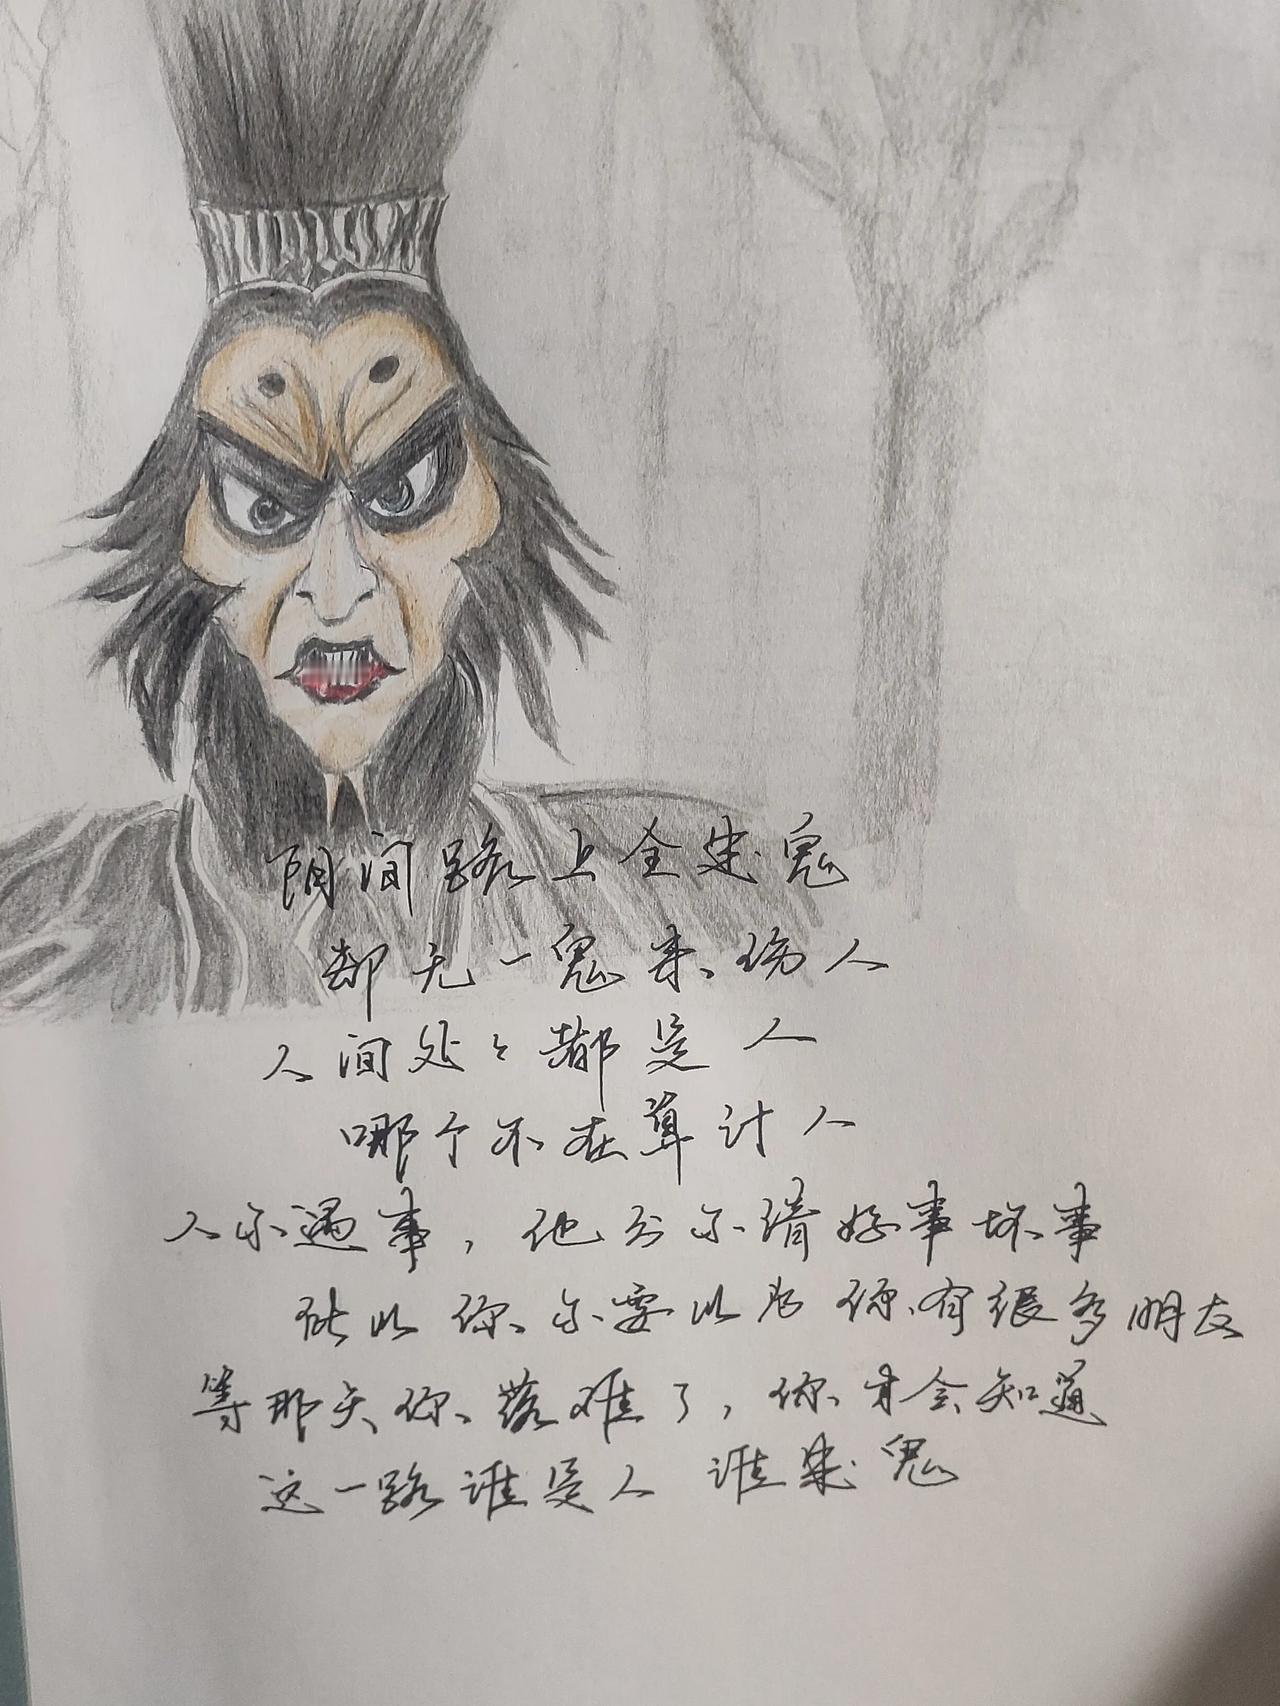 阴间路上全是鬼
却无一鬼来伤人
人间处々都是人
哪个不在算计人
人不遇事，他分不清好事坏事
就此你不要以为你有很多朋友
等那天你落难了，你才会知道
这一路谁是人 谁是鬼